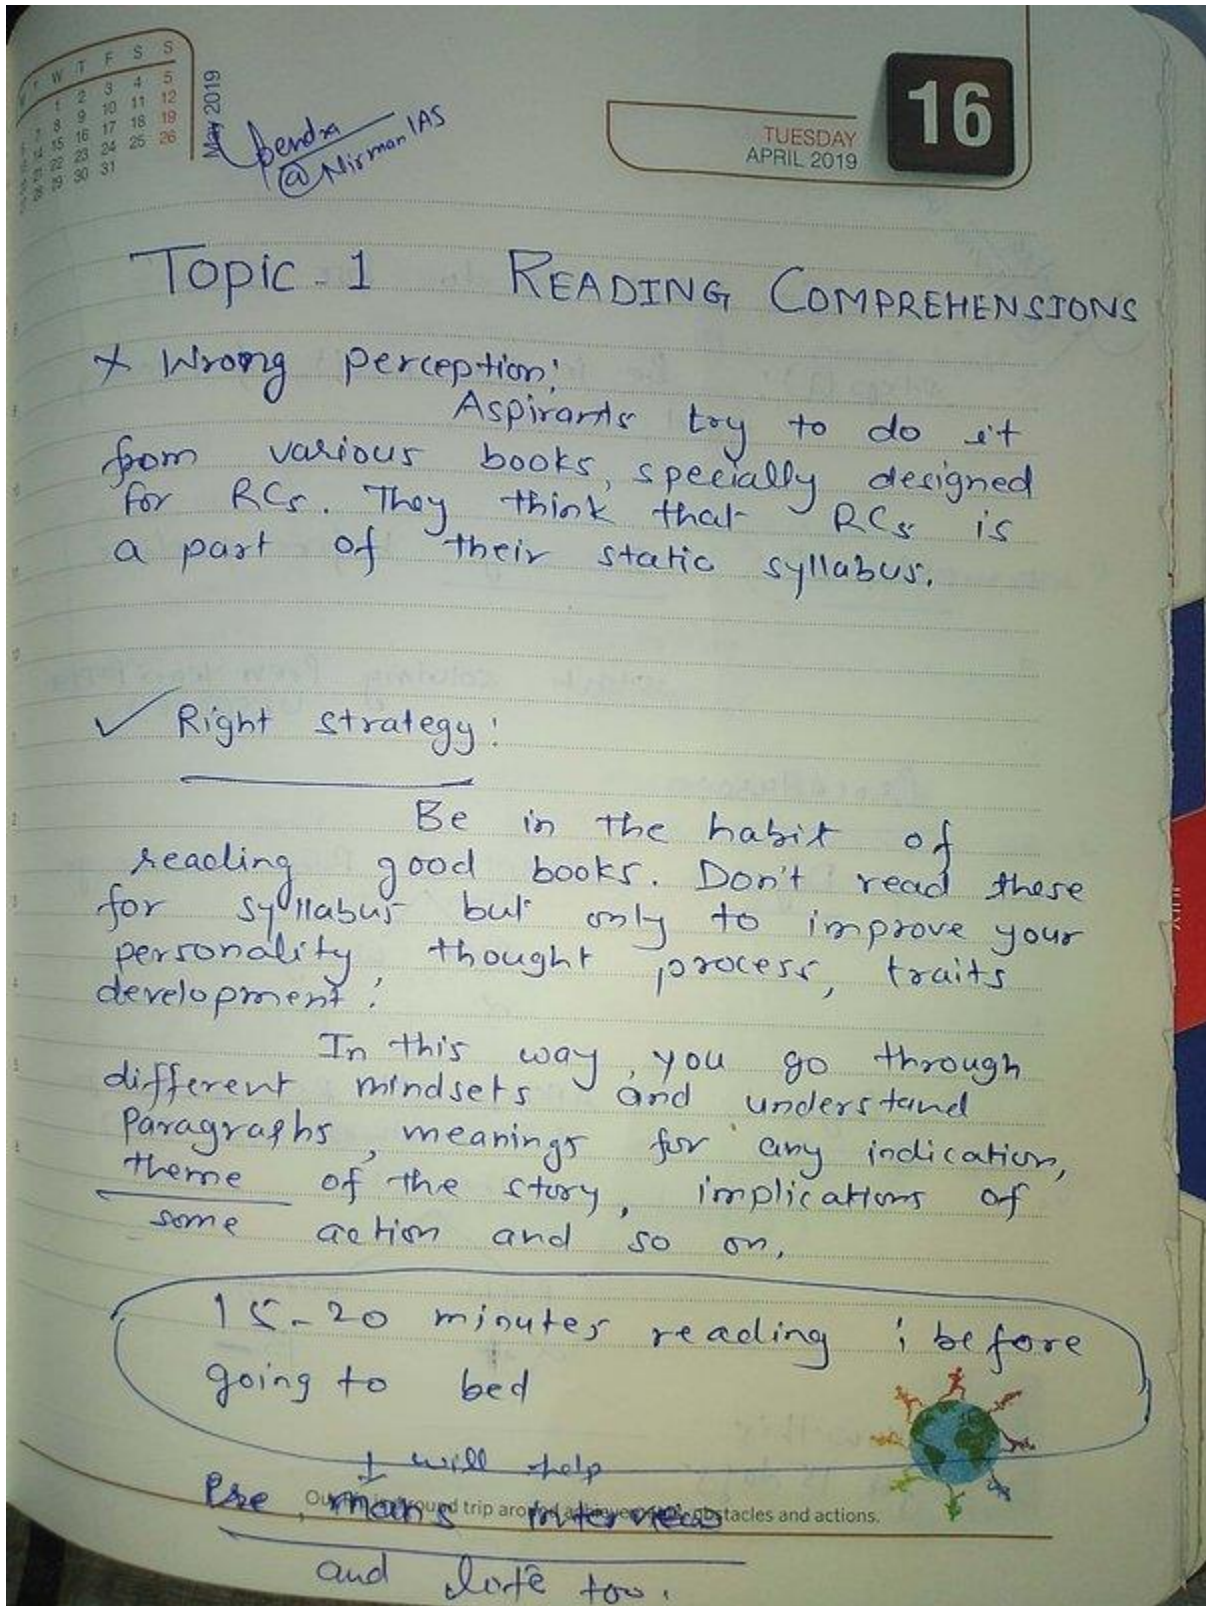 W T F S S
1 2 3 4 5
8 9 10 11 12
15 16 17 18 19
22 23 24 25 26
29 30 31
May 2019
Upendra
@Nirman IAS
16
TUESDAY
APRIL 2019
Topic-1 READING COMPREHENSIONS
x Wrong perception:
Aspirants try to do it
from various books, specially designed
for RCs. They think that RCs is
a part of their static syllabus.
✓ Right strategy:
Be in the habit of
reading good books. Don't read these
for syllabus but only to improve your
personality, thought process, traits
development.
In this way, you go through
different mindsets and understand
Paragraphs, meanings for any indication,
theme of the story, implications of
some action and so on.
15-20 minutes reading ; before
going to bed
↓ will help
Pre, mains interview
Our life is a round trip around achievements, obstacles and actions.
and life too.